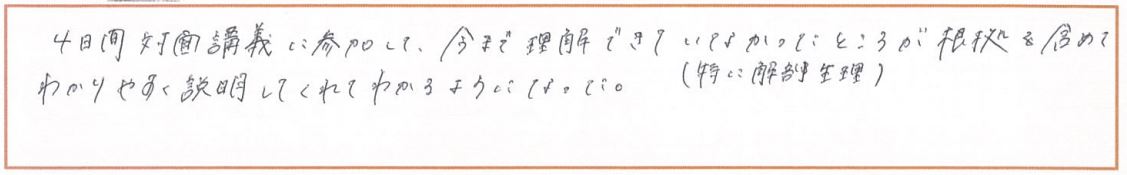 4日間対面講義に参加して、今まで理解できていなかったところが根拠を含めて
(特に解剖生理)
わかりやすく説明してくれてわかるようになった。